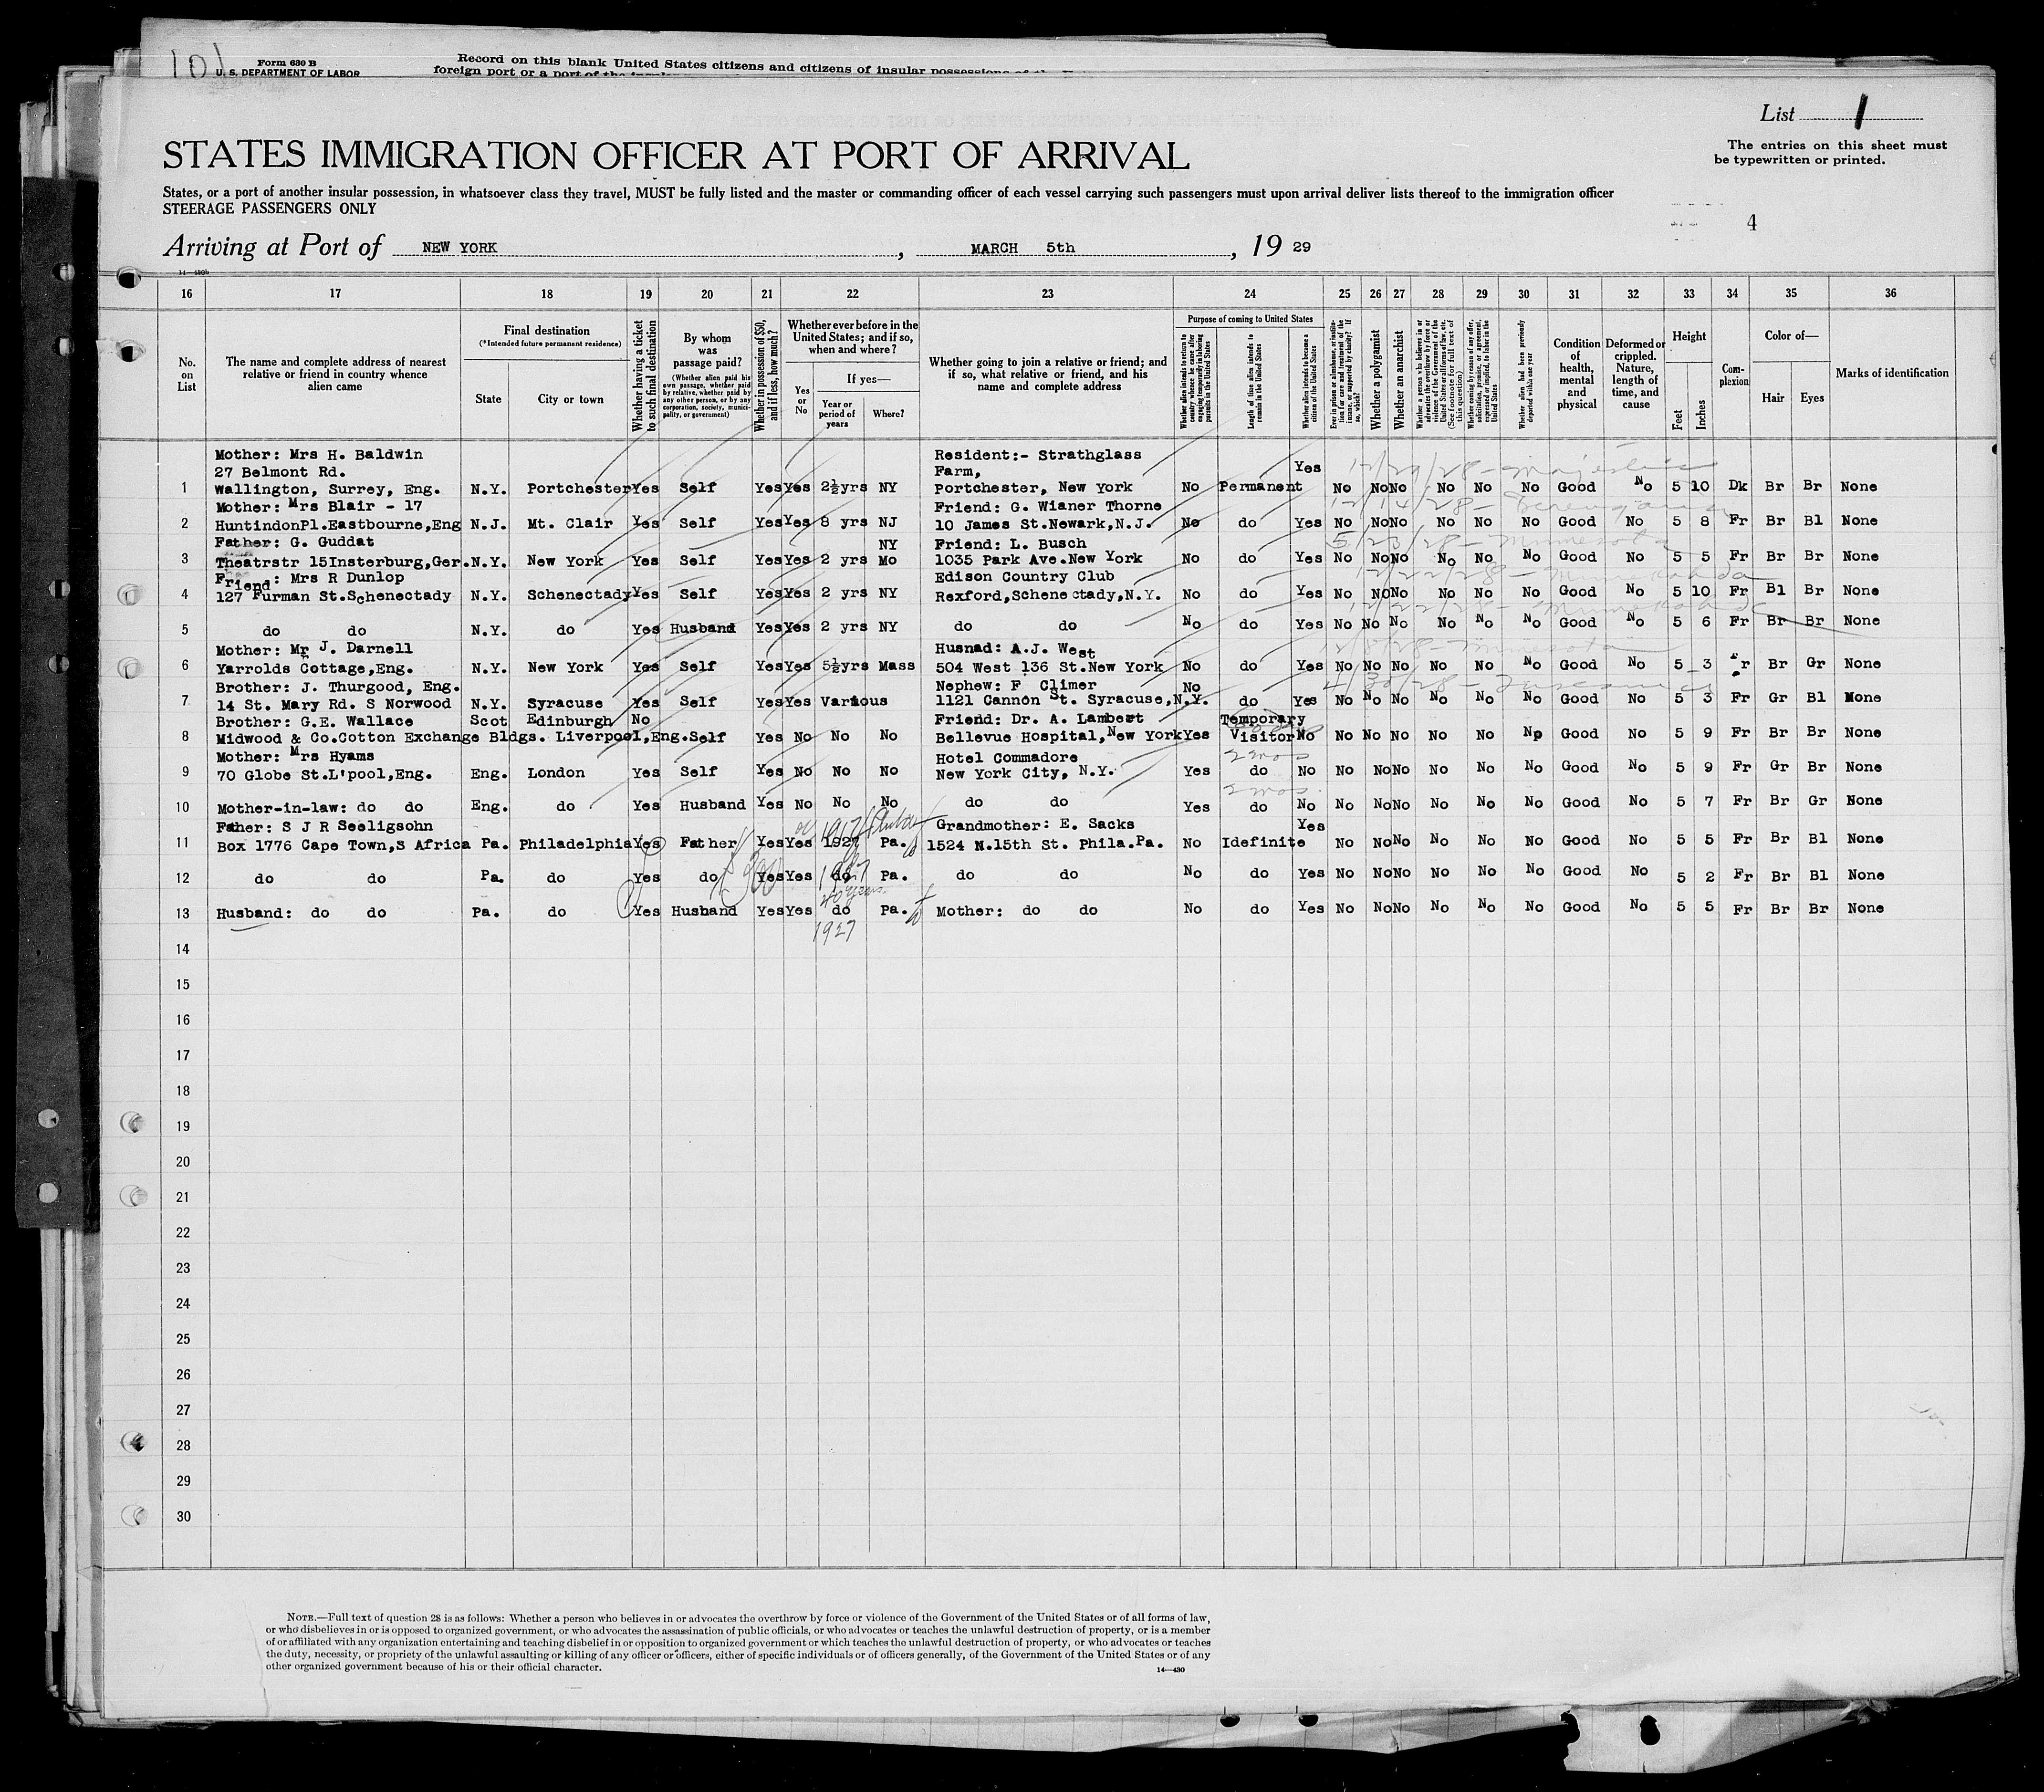 101
Form 630 B
U. S. DEPARTMENT OF LABOR
Record on this blank United States citizens and citizens of insular possessions
foreign port or a port of the
List 1
The entries on this sheet must
be typewritten or printed.
STATES IMMIGRATION OFFICER AT PORT OF ARRIVAL
States, or a port of another insular possession, in whatsoever class they travel, MUST be fully listed and the master or commanding officer of each vessel carrying such passengers must upon arrival deliver lists thereof to the immigration officer
STEERAGE PASSENGERS ONLY
4
Arriving at Port of NEW YORK, MARCH 5th, 19 29
16 17 18 19 20 21 22 23 24 25 26 27 28 29 30 31 32 33 34 35 36
No. on List
The name and complete address of nearest relative or friend in country whence alien came
Final destination
(*Intended future permanent residence)
State
City or town
Whether having a ticket to such final destination
By whom was passage paid?
(Whether alien paid his own passage, whether paid by relative, whether paid by any other person, or by any corporation, society, municipality, or government)
Whether in possession of $50, and if less, how much?
Whether ever before in the United States; and if so, when and where?
Yes or No
If yes—
Year or period of years
Where?
Whether going to join a relative or friend; and if so, what relative or friend, and his name and complete address
Purpose of coming to United States
Whether alien intends to return to country whence he came after engaging temporarily in laboring pursuits in the United States
Length of time alien intends to remain in the United States
Whether alien intends to become a citizen of the United States
Ever in prison or almshouse, or institution for care and treatment of the insane, or supported by charity? If so, which?
Whether a polygamist
Whether an anarchist
Whether a person who believes in or advocates the overthrow by force or violence of the Government of the United States or all forms of law, etc. (See footnote for full text of this question)
Whether coming by reason of any offer, solicitation, promise, or agreement, expressed or implied, to labor in the United States
Whether alien had been previously deported within one year
Condition of health, mental and physical
Deformed or crippled. Nature, length of time, and cause
Height
Feet
Inches
Complexion
Color of—
Hair
Eyes
Marks of identification
Mother: Mrs H. Baldwin Resident:- Strathglass
27 Belmont Rd. Farm, Yes 12/26/28 - Majestic
1 Wallington, Surrey, Eng. N.Y. Portchester Yes Self Yes Yes 2½yrs NY Portchester, New York No Permanent No No No No No No Good No 5 10 Dk Br Br None
Mother: Mrs Blair - 17 Friend: G. Wianer Thorne 12/14/28 - Berengaria
2 HuntindonPl.Eastbourne,Eng N.J. Mt. Clair Yes Self Yes Yes 8 yrs NJ 10 James St.Newark,N.J. No do Yes No No No No No No Good No 5 8 Fr Br Bl None
Father: G. Guddat NY Friend: L. Busch 5/23/28 - Minnesota
3 Theatrstr 15Insterburg,Ger. N.Y. New York Yes Self Yes Yes 2 yrs Mo 1035 Park Ave.New York No do Yes No No No No No No Good No 5 5 Fr Br Br None
Friend: Mrs R Dunlop Edison Country Club 12/22/28 - Minnekahda
4 127 Furman St.Schenectady N.Y. Schenectady Yes Self Yes Yes 2 yrs NY Rexford,Schenectady,N.Y. No do Yes No No No No No No Good No 5 10 Fr Bl Br None
12/22/28 - Minnekahda
5 do do N.Y. do Yes Husband Yes Yes 2 yrs NY do do No do Yes No No No No No No Good No 5 6 Fr Br Br None
Mother: Mr J. Darnell Husnad: A.J. West Minnesota
6 Yarrolds Cottage,Eng. N.Y. New York Yes Self Yes Yes 5½yrs Mass 504 West 136 St.New York No do Yes No No No No No No Good No 5 3 Fr Br Gr None
Brother: J. Thurgood, Eng. Nephew: F Climer No 4/30/28 - Tuscania
7 14 St. Mary Rd. S Norwood N.Y. Syracuse Yes Self Yes Yes Various 1121 Cannon St. Syracuse,N.Y. do Yes No No No No No No Good No 5 3 Fr Gr Bl None
Brother: G.E. Wallace Scot Edinburgh No Friend: Dr. A. Lambert Temporary
8 Midwood & Co.Cotton Exchange Bldgs. Liverpool,Eng. Self Yes No No No Bellevue Hospital,New York Yes Visitor No No No No No No No Good No 5 9 Fr Br Br None
Mother: Mrs Hyams Hotel Commadore 2 mos
9 70 Globe St.L'pool,Eng. Eng. London Yes Self Yes No No No New York City, N.Y. Yes do No No No No No No No Good No 5 9 Fr Gr Br None
2 mos.
10 Mother-in-law: do do Eng. do Yes Husband Yes No No No do do Yes do No No No No No No No Good No 5 7 Fr Br Gr None
Father: S J R Seeligsohn 1917 Grandmother: E. Sacks Yes
11 Box 1776 Cape Town,S Africa Pa. Philadelphia Yes Father Yes Yes 1927 Pa. 1524 N.15th St. Phila.Pa. No Idefinite No No No No No No Good No 5 5 Fr Br Bl None
12 do do Pa. do Yes do $300 Yes Yes do 1927 Pa. do do No do Yes No No No No No No Good No 5 2 Fr Br Bl None
20 years
13 Husband: do do Pa. do Yes Husband Yes Yes do Pa. Mother: do do No do Yes No No No No No No Good No 5 5 Fr Br Br None
1927
14
15
16
17
18
19
20
21
22
23
24
25
26
27
28
29
30
NOTE.—Full text of question 28 is as follows: Whether a person who believes in or advocates the overthrow by force or violence of the Government of the United States or of all forms of law,
or who disbelieves in or is opposed to organized government, or who advocates the assassination of public officials, or who advocates or teaches the unlawful destruction of property, or is a member
of or affiliated with any organization entertaining and teaching disbelief in or opposition to organized government or which teaches the unlawful destruction of property, or who advocates or teaches
the duty, necessity, or propriety of the unlawful assaulting or killing of any officer or officers, either of specific individuals or of officers generally, of the Government of the United States or of any
other organized government because of his or their official character.
14—430